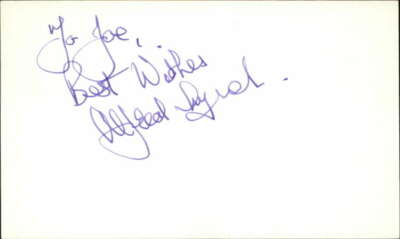 To Joe,
Best Wishes
Alfred Lynch.